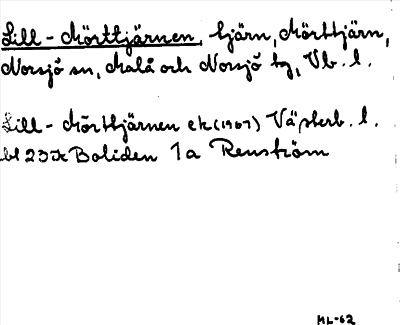 Lill-Mörttjärnen, tjärn, Mörttjärn,
Norsjö sn, Malå och Norsjö tg, Vb. l.
Lill-Mörttjärnen ek (1967) Västerb. l.
bl 23K Boliden 1a Renström
ML-62